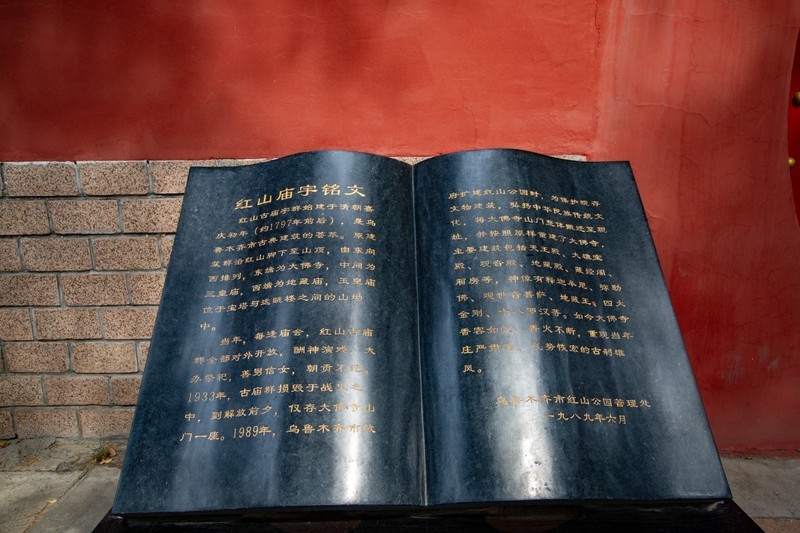 红山庙宇铭文
红山古庙宇群始建于清朝嘉
庆初年（约1797年前后），是乌
鲁木齐市古典建筑的荟萃。原建
筑群沿红山脚下至山顶，由东向
西排列，东端为大佛寺，中间为
三皇庙，西端为地藏庙，玉皇庙
位于宝塔与远眺楼之间的山坳
中。
当年，每逢庙会，红山古庙
群全部对外开放，酬神演戏，大
办祭祀，善男信女，朝贡不绝。
1933年，古庙群损毁于战火之
中，到解放前夕，仅存大佛寺山
门一座。1989年，乌鲁木齐市政
府扩建红山公园时，为保护现存
文物建筑，弘扬中华民族传统文
化，将大佛寺山门整体搬迁至现
址，并按照原样重建了大佛寺，
主要建筑包括天王殿、大雄宝
殿、观音殿、地藏殿、藏经阁、
厢房等，神位有释迦牟尼、弥勒
佛、观世音菩萨、地藏王、四大
金刚、十八罗汉等。如今大佛寺
香客如云，香火不断，重现当年
庄严肃穆、气势恢宏的古刹雄
风。
乌鲁木齐市红山公园管理处
一九八九年六月